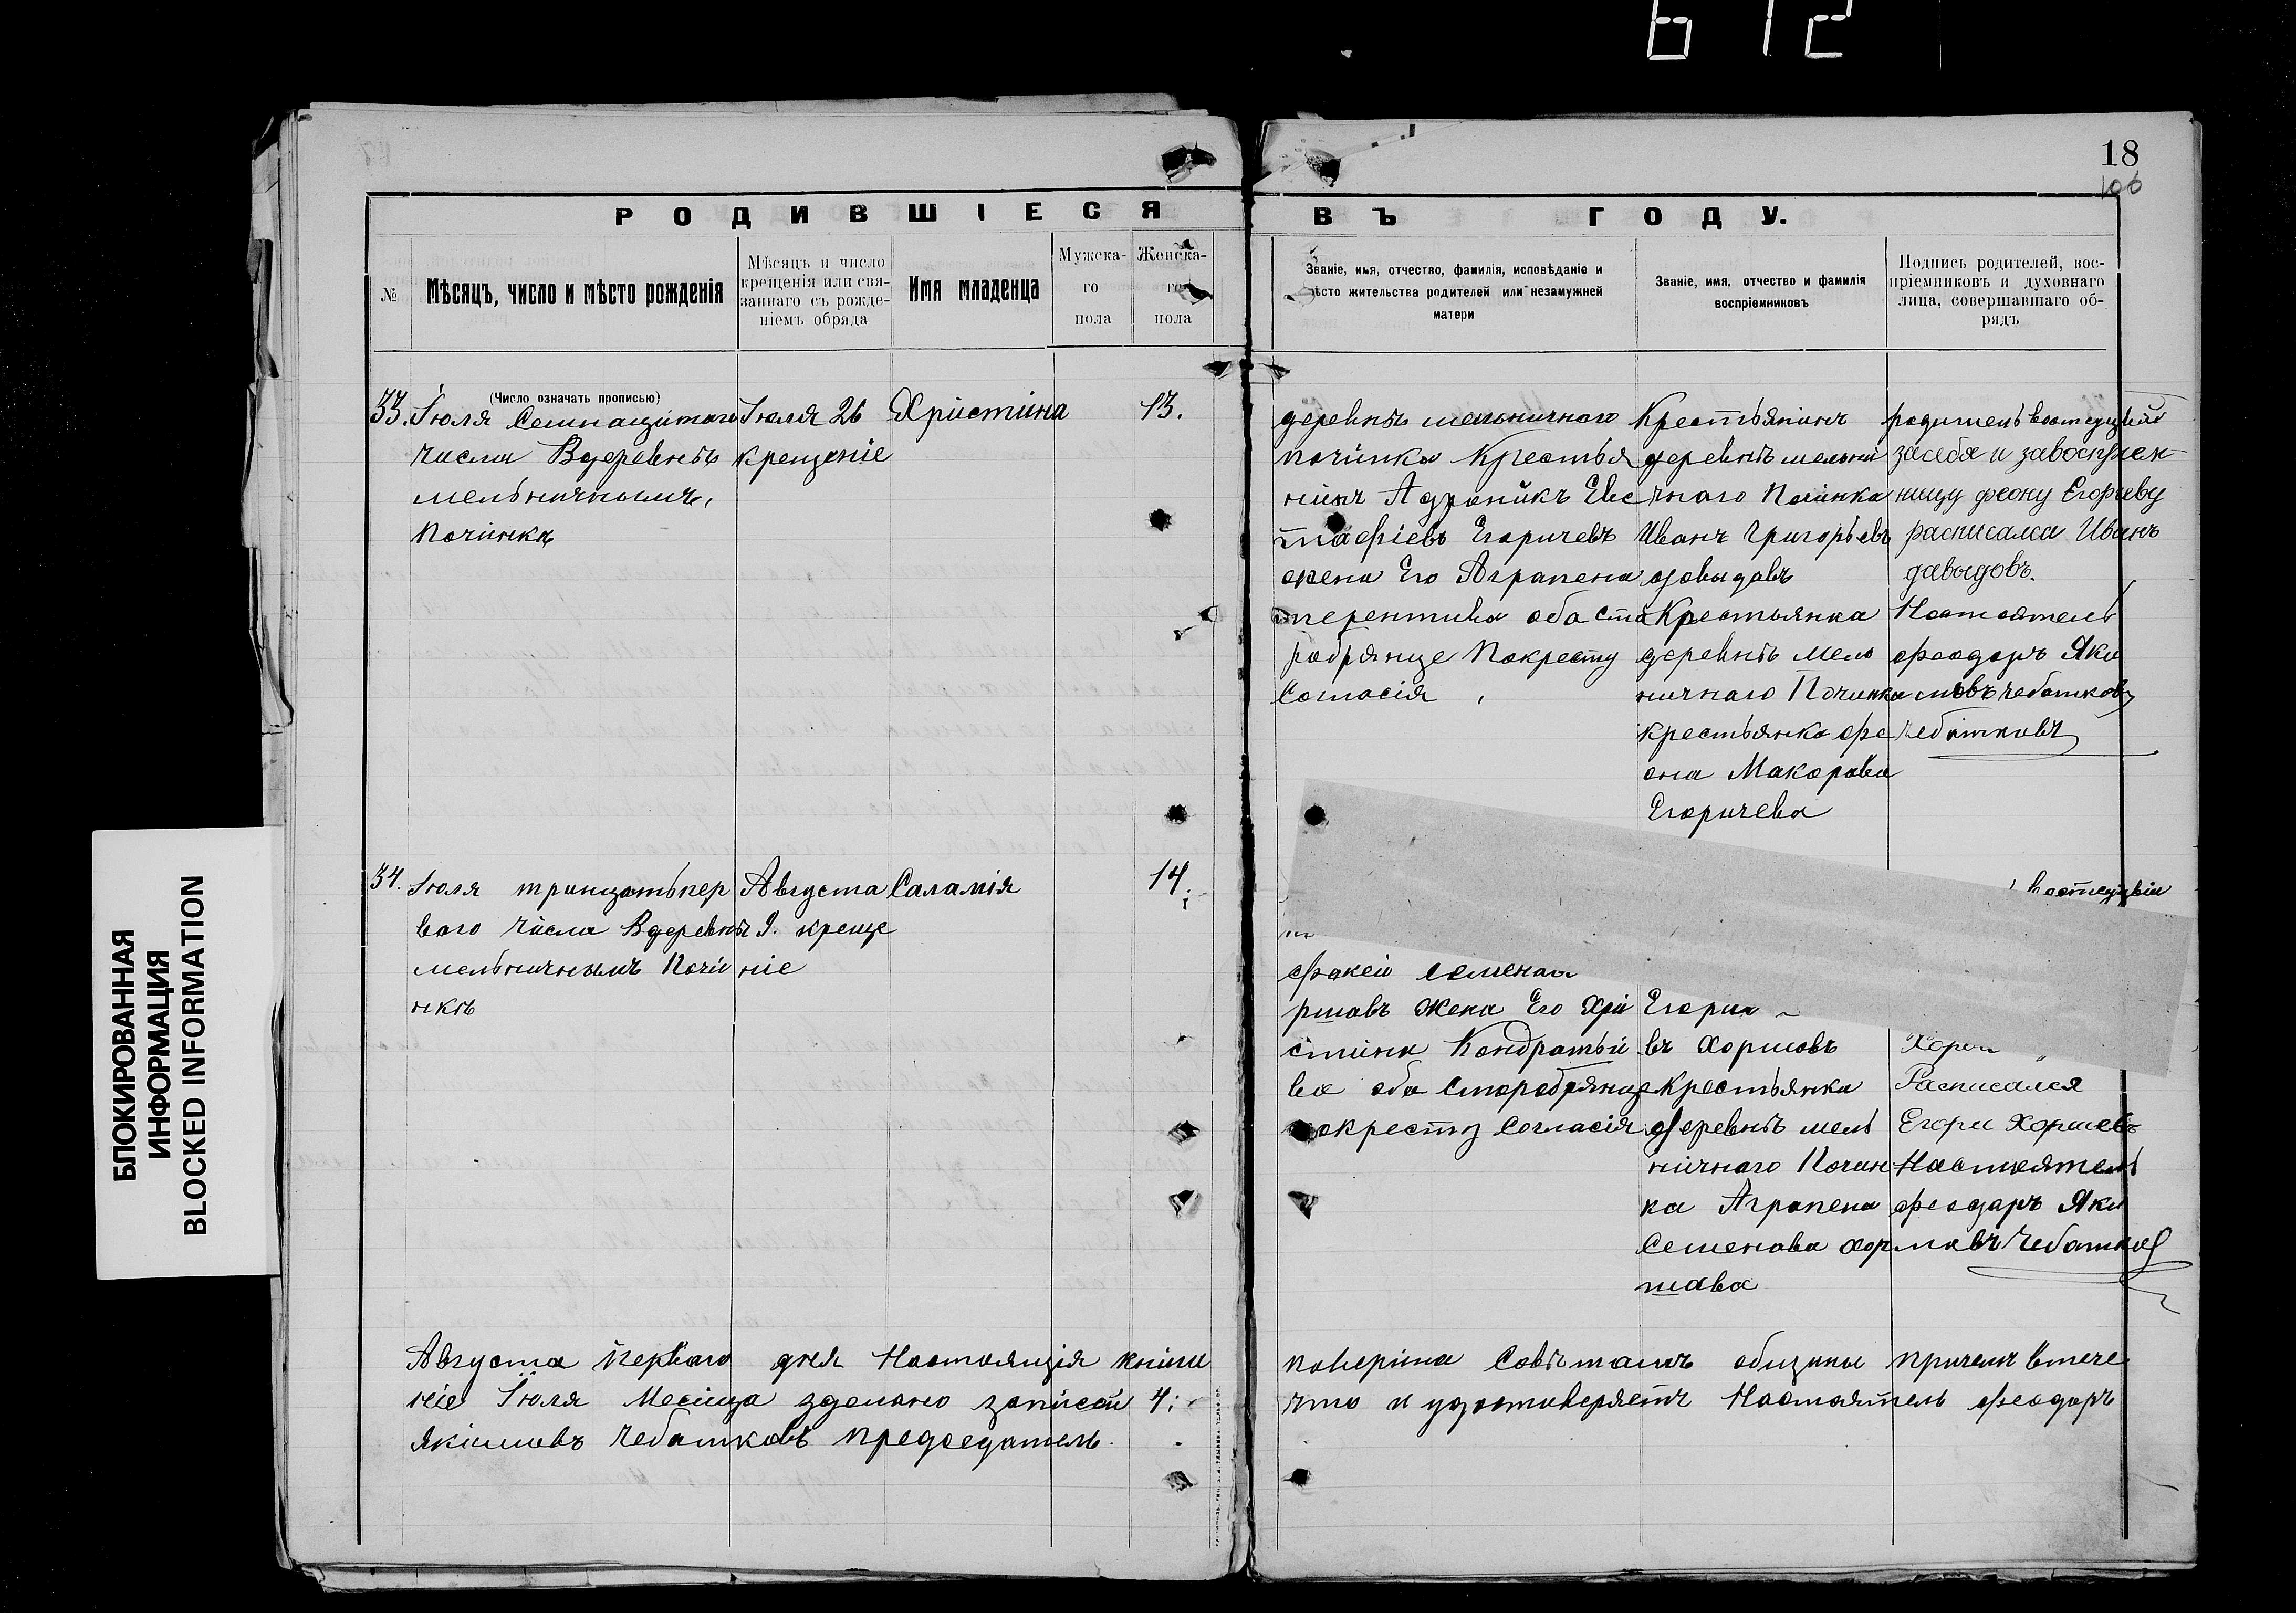 612
18
106
РОДИВШІЕСЯ ВЪ ГОДУ.
№
Мѣсяцъ, число и мѣсто рожденія
Мѣсяцъ и число
крещенія или свя-
заннаго съ рожде-
ніемъ обряда
Имя младенца
Мужска-
го
пола
Женска-
го
пола
Званіе, имя, отчество, фамилія, исповѣданіе и
мѣсто жительства родителей или незамужней
матери
Званіе, имя, отчество и фамилія
воспріемниковъ
Подпись родителей, вос-
пріемниковъ и духовнаго
лица, совершавшаго об-
рядъ
(Число означать прописью)
33.
Іюля Семнацитаго
числа Вдеревнѣ
мельничнымъ,
Починкѣ
Іюля 26
крещеніе
Христина
13.
деревнѣ мельничнаго
починка Крестья
нинъ Адроникъ Евс
тафіевъ Егоричевъ
жена Его Аграпена
терентива оба ста
робрянце Покресту
Согласія
Крестьянинъ
деревнѣ мельни
чнаго Починка
Иванъ Григорьевъ
довыдовъ
Крестьянка
деревнѣ мело
ничнаго Починка
крестьянка фе
она Макорова
Егоричева
родитель
засебя и
ницу феону Егорьеву
расписался Иванъ
давыдовъ.
Настоятель
феодоръ Яки
мовъ чебатковъ
Чебатковъ
34.
Іюля тринцотьпер
вого числа Вдеревнѣ
мельничнымъ Почи
нкѣ
Августа
1. креще
ніе
Саламія
14.
фокеи семенов
ршовъ жена Его Хри
стина Кондратьи
ва оба Старобрянце
покресту Согласія
Егори
въ Хоршовъ
Крестьянка
деревнѣ мель
ничнаго Почин
ка Аграпена
Семенова хор
шова
Расписался
Егори Хоршовъ
Настоятель
феодоръ Яки
мовъ Чебатков
Августа Перваго дня Настоящія книга поверіна Совѣтамъ общины причемъ втече
ніе Іюля Месица зделано записи 4: что и удостоверяетъ Настоятель феодоръ
Якимовъ Чебатковъ председатель.
БЛОКИРОВАННАЯ
ИНФОРМАЦИЯ
BLOCKED INFORMATION